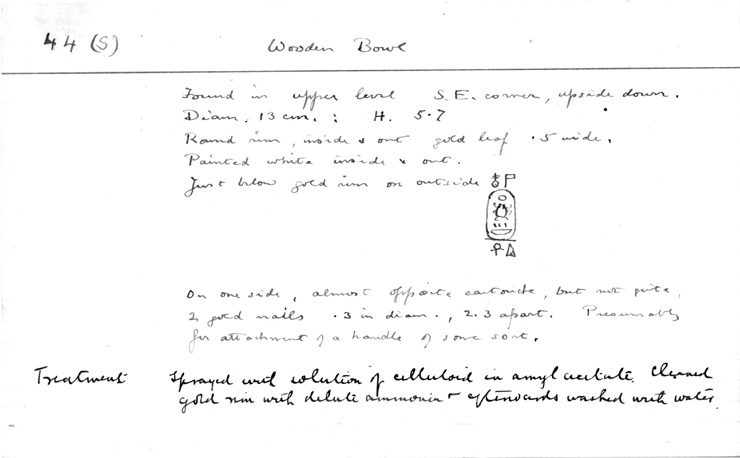 44 (S) Wooden Bowl
Found in upper level S.E. corner, upside down.
Diam. 13 cm. ; H. 5.7
Round rim, inside & out gold leaf .5 wide.
Painted white inside & out.
Just below gold rim on outside
On one side, almost opposite cartouche, but not quite,
2 gold nails .3 in diam., 2.3 apart. Presumably
for attachment of a handle of some sort.
Treatment Sprayed with solution of celluloid in amyl acetate. Cleaned
gold rim with dilute ammonia & afterwards washed with water